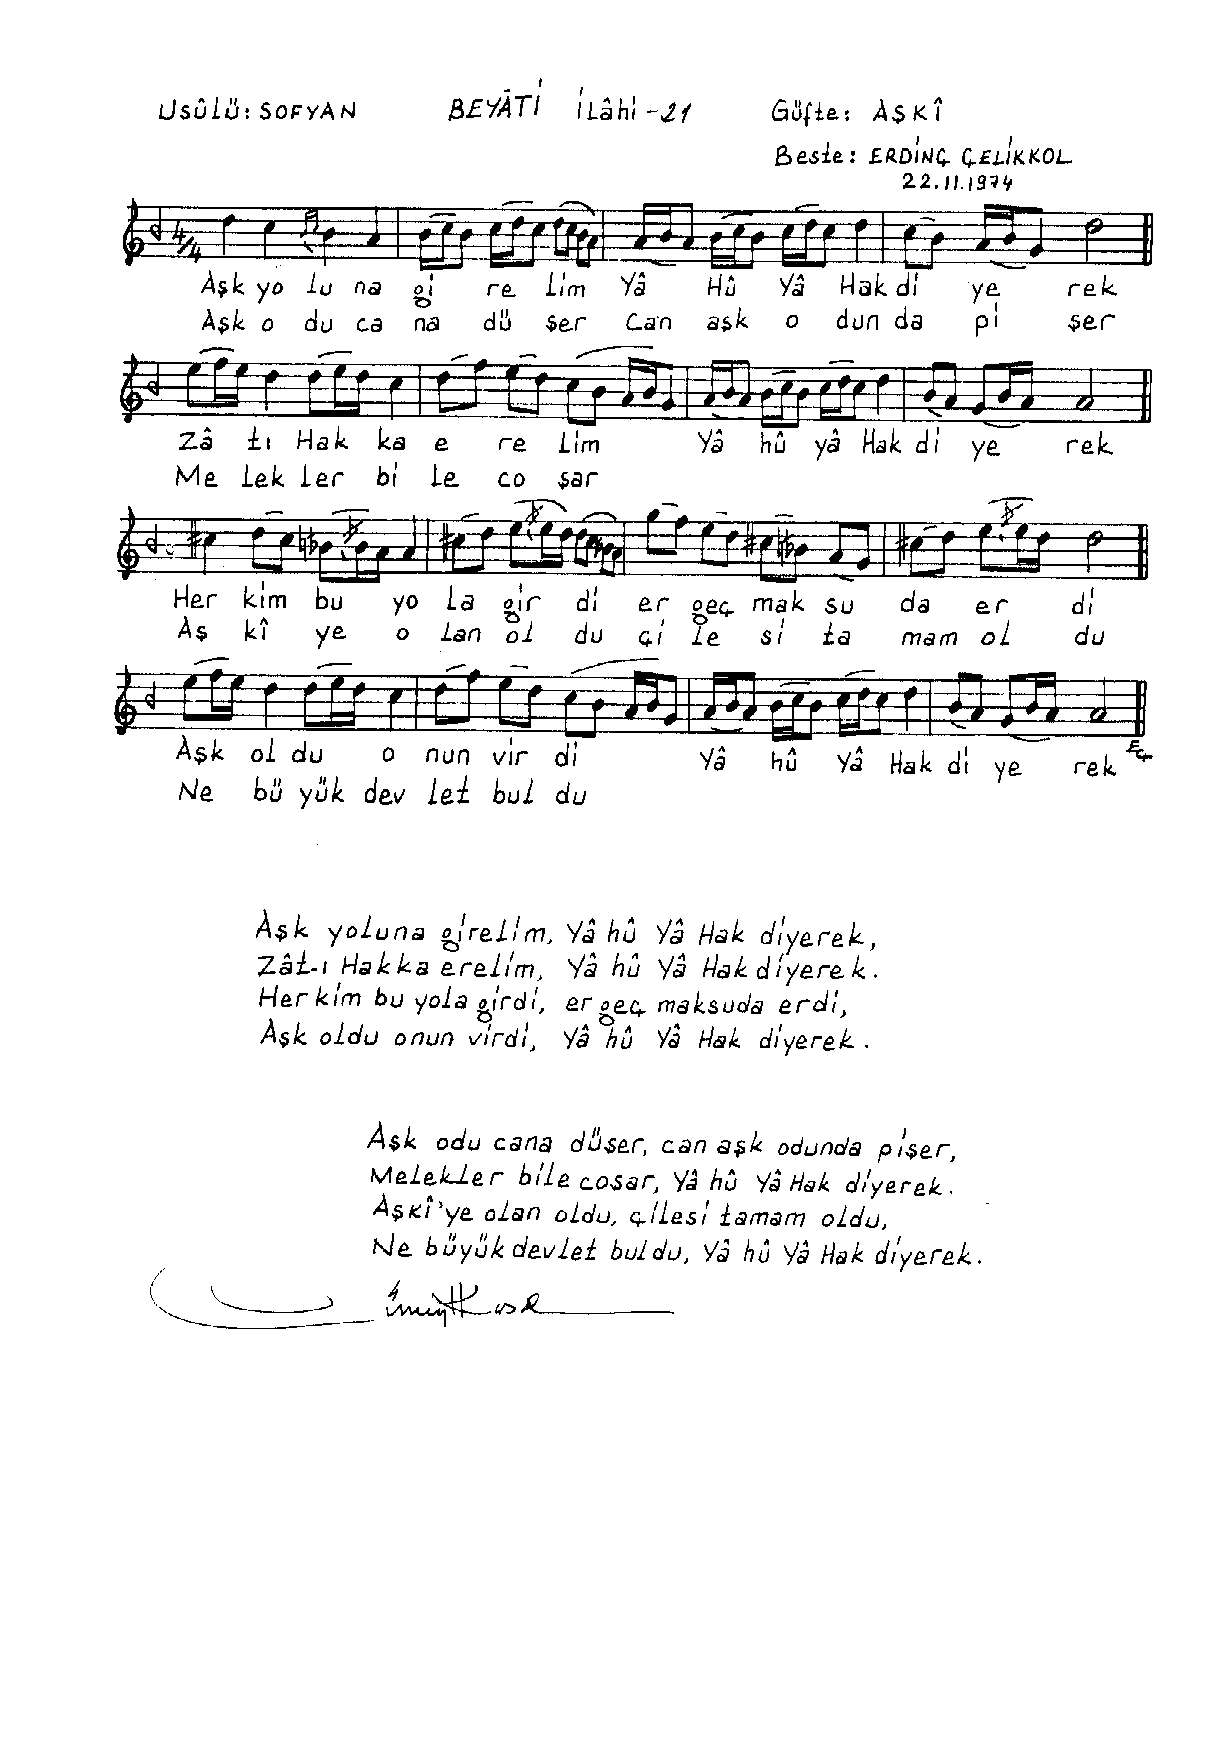 Usûlü: SOFYAN BEYÂTİ İLâhi -21 Güfte: AŞKÎ
Beste: ERDİNÇ ÇELİKKOL
22.11.1974
4/4
Aşk yo lu na gi re lim Yâ Hû Yâ Hak di ye rek
Aşk o du ca na dü şer Can aşk o dun da pi şer
Zâ tı Hak ka e re lim Yâ hû yâ Hak di ye rek
Me lek ler bi le co şar
Her kim bu yo la gir di er geç mak su da er di
Aş kî ye o lan ol du çi le si ta mam ol du
Aşk ol du o nun vir di Yâ hû Yâ Hak di ye rek
EÇ
Ne bü yük dev let bul du
Aşk yoluna girelim, Yâ hû Yâ Hak diyerek,
Zât-ı Hakka erelim, Yâ hû Yâ Hak diyerek.
Her kim bu yola girdi, er geç maksuda erdi,
Aşk oldu onun virdi, Yâ hû Yâ Hak diyerek.
Aşk odu cana düşer, can aşk odunda pişer,
Melekler bile coşar, Yâ hû Yâ Hak diyerek.
Aşkî'ye olan oldu, çilesi tamam oldu,
Ne büyük devlet buldu, Yâ hû Yâ Hak diyerek.